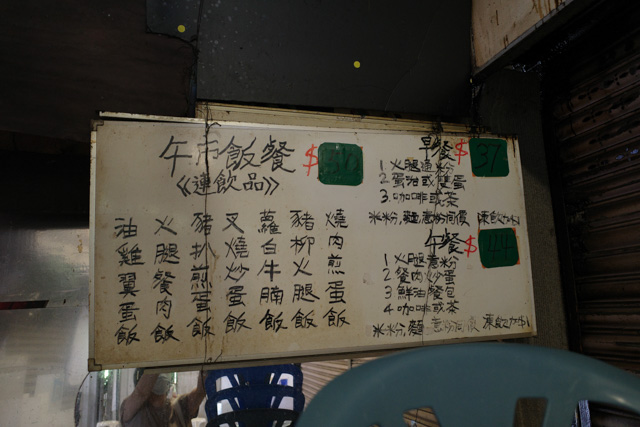 午市飯餐 $
《連飲品》
燒肉煎蛋飯
豬柳火腿飯
蘿白牛腩飯
叉燒炒蛋飯
豬扒煎蛋飯
火腿餐肉飯
油雞翼蛋飯
早餐 $37
1 火腿通粉
2 蛋治或雙蛋
3 咖啡或茶
米粉,麵,意粉同價 凍飲加
午餐 $44
1 火腿意粉
2 餐肉炒蛋
3 鮮油餐包
4 咖啡或茶
米粉,麵 意粉同價 凍飲加